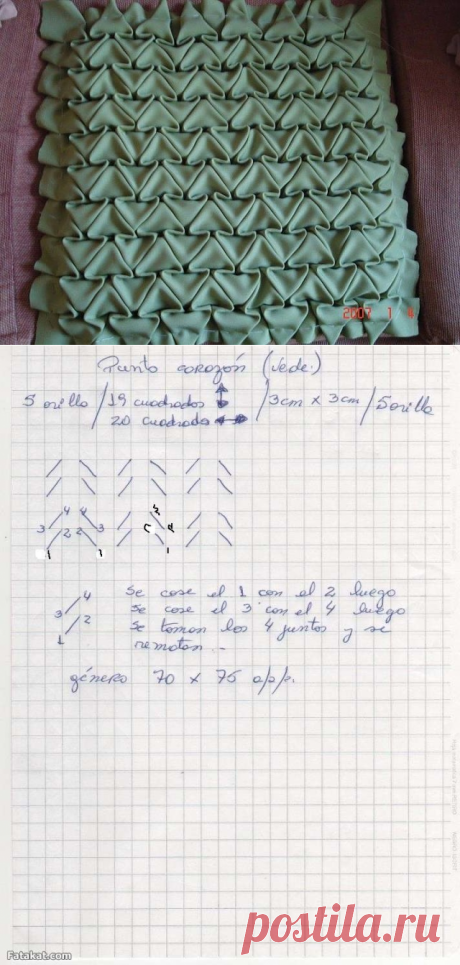 2007 1 4
Punto corozón (Vede)
5 orilla / 19 cuadrados / 3cm x 3cm / 5 orilla
20 cuadrados
4 4
3 2 2 3
1 1
3 4
1 2
Se cose el 1 con el 2 luego
Se cose el 3 con el 4 luego
Se toman los 4 juntos y se
rematan.-
género 70 x 75 a/p/.
Fatakat.com
postila.ru